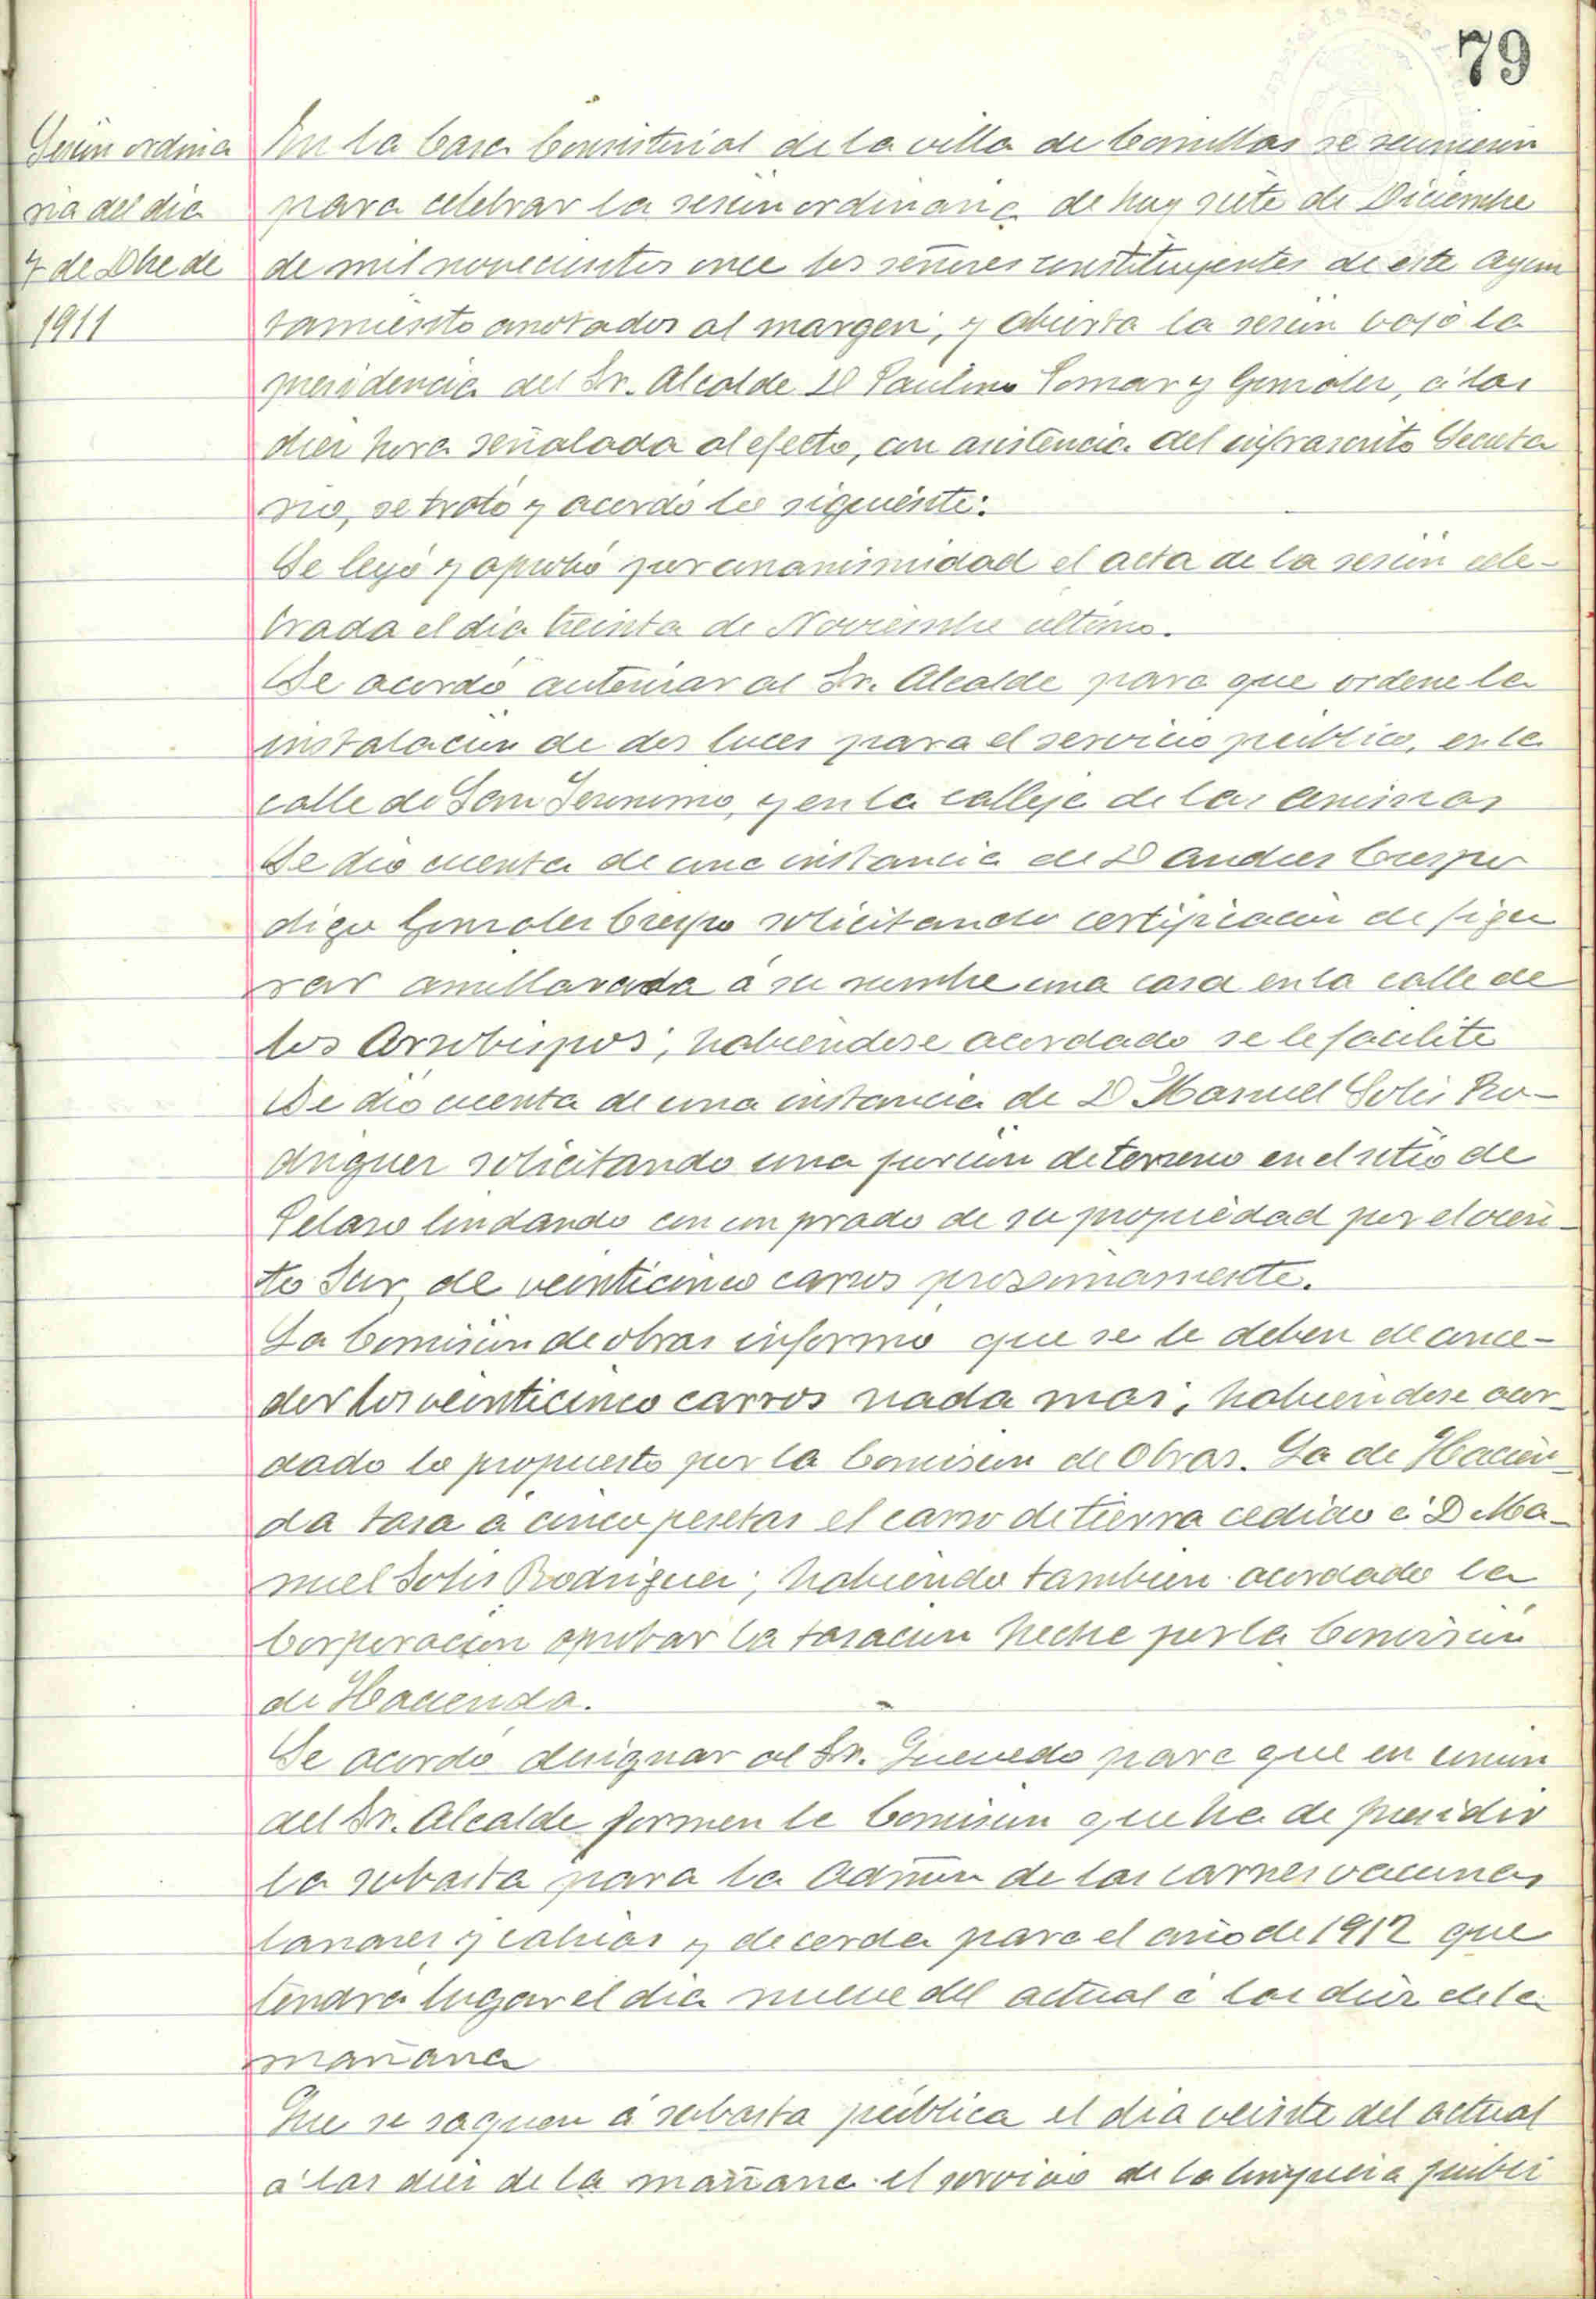 79
Sesión ordina
ria del dia
7 de Dbre de
1911
En la Casa Consistorial de la villa de Comillas se reunieron
para celebrar la sesión ordinaria de hoy siete de Diciembre
de mil novecientos once los señores constituyentes de este Ayun
tamiento anotados al margen, y abierta la sesión bajo la
presidencia del Sr. Alcalde D Paulino Pomar y Gonzalez, á las
diez hora señalada al efecto, con asistencia del infrascrito Secreta
rio, se trató y acordó lo siguiente:
Se leyó y aprobó por unanimidad el acta de la sesión cele-
brada el dia treinta de Noviembre ultimo.
Se acordó autorizar al Sr. Alcalde para que ordene la
instalación de dos luces para el servicio publico, en la
calle de San Jeronimo, y en la calleja de las Animas
Se dio cuenta de una instancia de D Andres Crespo
digo Gonzalez Crespo solicitando certificación de figu
rar amillarada á su nombre una casa en la calle de
los Arzobispos, habiendose acordado se le facilite
Se dio cuenta de una instancia de D Manuel Solis Ro-
driguez solicitando una porción de terreno en el sitio de
lindando con un prado de su propiedad por el vien-
to Sur, de veinticinco carros proximamente.
La Comision de obras informó que se le deben de conce-
der los veinticinco carros nada mas, habiendose acor-
dado lo propuesto por la Comision de Obras. La de Hacien-
da tasa á cinco pesetas el carro de tierra cedido á D Ma-
nuel Solis Rodriguez, habiendo tambien acordado la
Corporación aprobar la tasación hecha por la Comisión
de Hacienda.
Se acordó designar al Sr. Quevedo para que en union
del Sr. Alcalde formen la Comision que ha de presidir
la subasta para la Admon de las carnes vacunas
lanares y cabrias y de cerda para el año de 1912 que
tendra lugar el dia nueve del actual á las diez de la
mañana
Que se saquen á subasta publica el dia veinte del actual
á las diez de la mañana el servicio de la limpieza publi